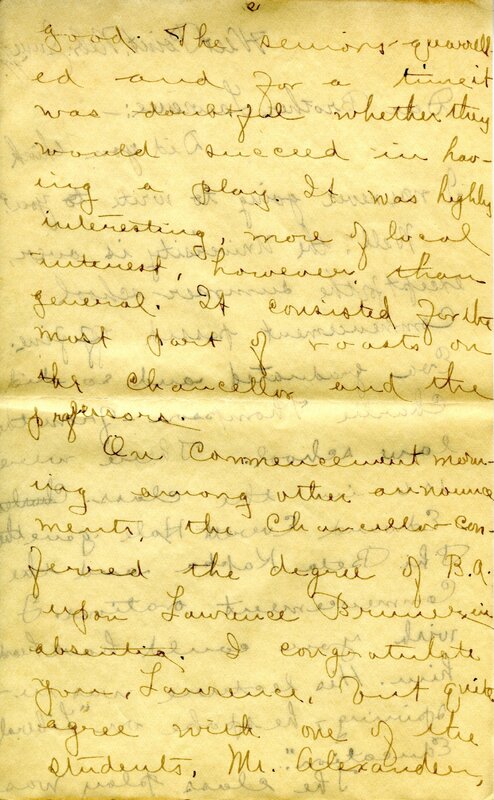 2
good. The seniors quarrell-
ed and for a time it
was doubtful whether they
would succeed in hav-
ing a play. It was highly
interesting, more of local
interest, however than
general. It consisted for the
most part of roasts on
the Chancellor and the
professors.
On Commencement morn-
ing among other announce
ments, the Chancellor con-
ferred the degree of B.A.
upon Lawrence Bruner in
absentia. I congratulate
you, Lawrence, but quite
agree with one of the
students, Mr. Alexander,